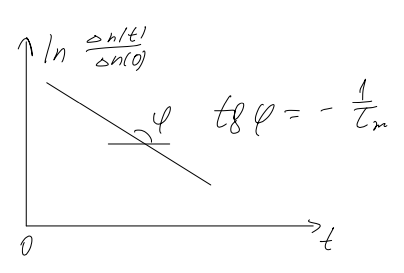 ln Δn(t)/Δn(0)
φ
tg φ = - 1/τₘ
0
t